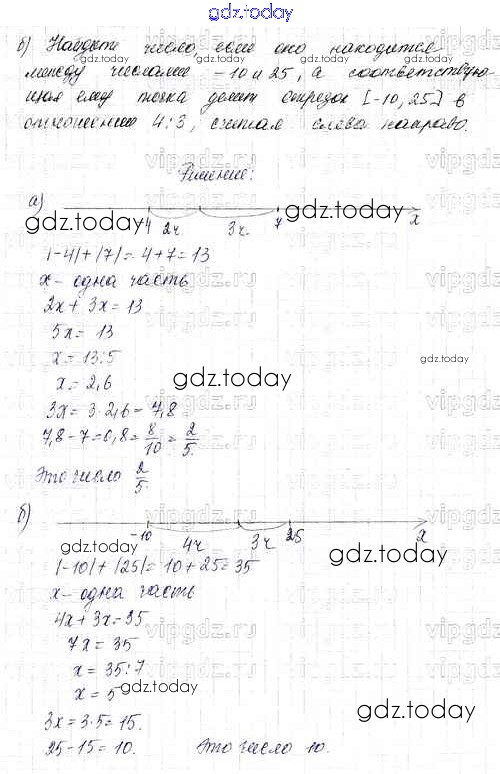 gdz.today
б) Найдите число, если оно находится
между числами -10 и 25, а соответствую-
щая ему точка делит отрезок [-10, 25] в
отношении 4:3, считая слева направо.
Решение:
а)
-4 2ч 3ч 7 x
gdz.today gdz.today
|-4| + |7| = 4+7= 13
x - одна часть
2x + 3x = 13
5x = 13
x = 13:5
gdz.today
x = 2,6
gdz.today
3x = 3·2,6 = 7,8
7,8 - 7 = 0,8 = 8/10 = 2/5.
Это число 2/5.
б)
-10 4ч 3ч 25 x
gdz.today gdz.today
|-10| + |25| = 10 + 25 = 35
x - одна часть
4x + 3x = 35
7x = 35
x = 35:7
x = 5
gdz.today
3x = 3·5 = 15.
gdz.today
25-15 = 10. Это число 10.
vipgdz.ru